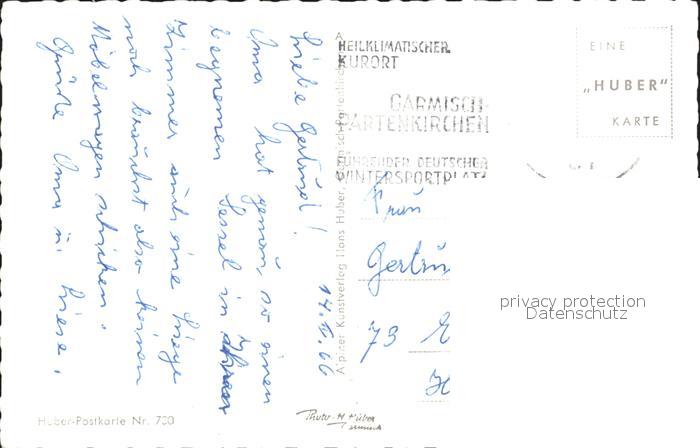 14. II. 66
Liebe Gertrud!
Oma hat genau, so einen
bequemen Sessel in ihrem
Zimmer auch eine Liege
noch brauchst also keinen
Möbelwagen schicken.
Grüße Oma u. Liese.
HEILKLIMATISCHER
KURORT
GARMISCH-
PARTENKIRCHEN
FÜHRENDER DEUTSCHER
WINTERSPORTPLATZ
EINE
„HUBER“
KARTE
Alpiner Kunstverlag Hans Huber, Garmisch-Partenkirchen
Frau
Gertru
73
privacy protection
Datenschutz
Huber-Postkarte Nr. 700
Photo-H. Huber